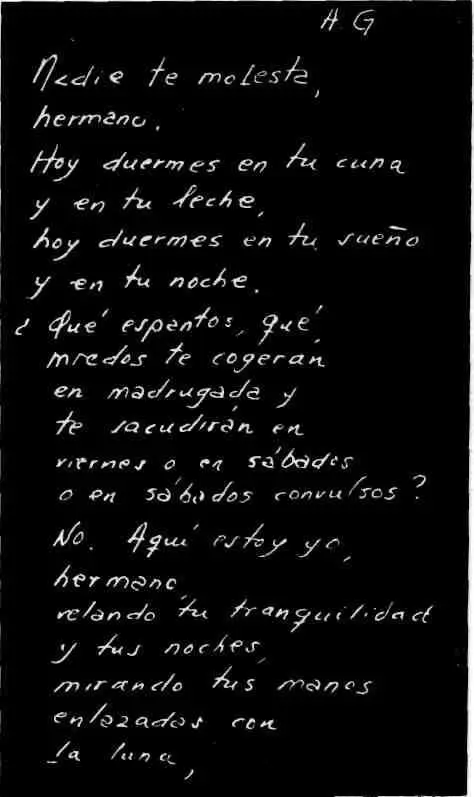 A.G
Nadie te molesta,
hermano.
Hoy duermes en tu cuna
y en tu leche,
hoy duermes en tu sueño
y en tu noche.
¿Qué espantos, qué
miedos te cogerán
en madrugada y
te sacudirán en
viernes o en sábados
o en sábados convulsos?
No. Aquí estoy yo,
hermano,
velando tu tranquilidad
y tus noches,
mirando tus manos
enlazadas con
la luna,